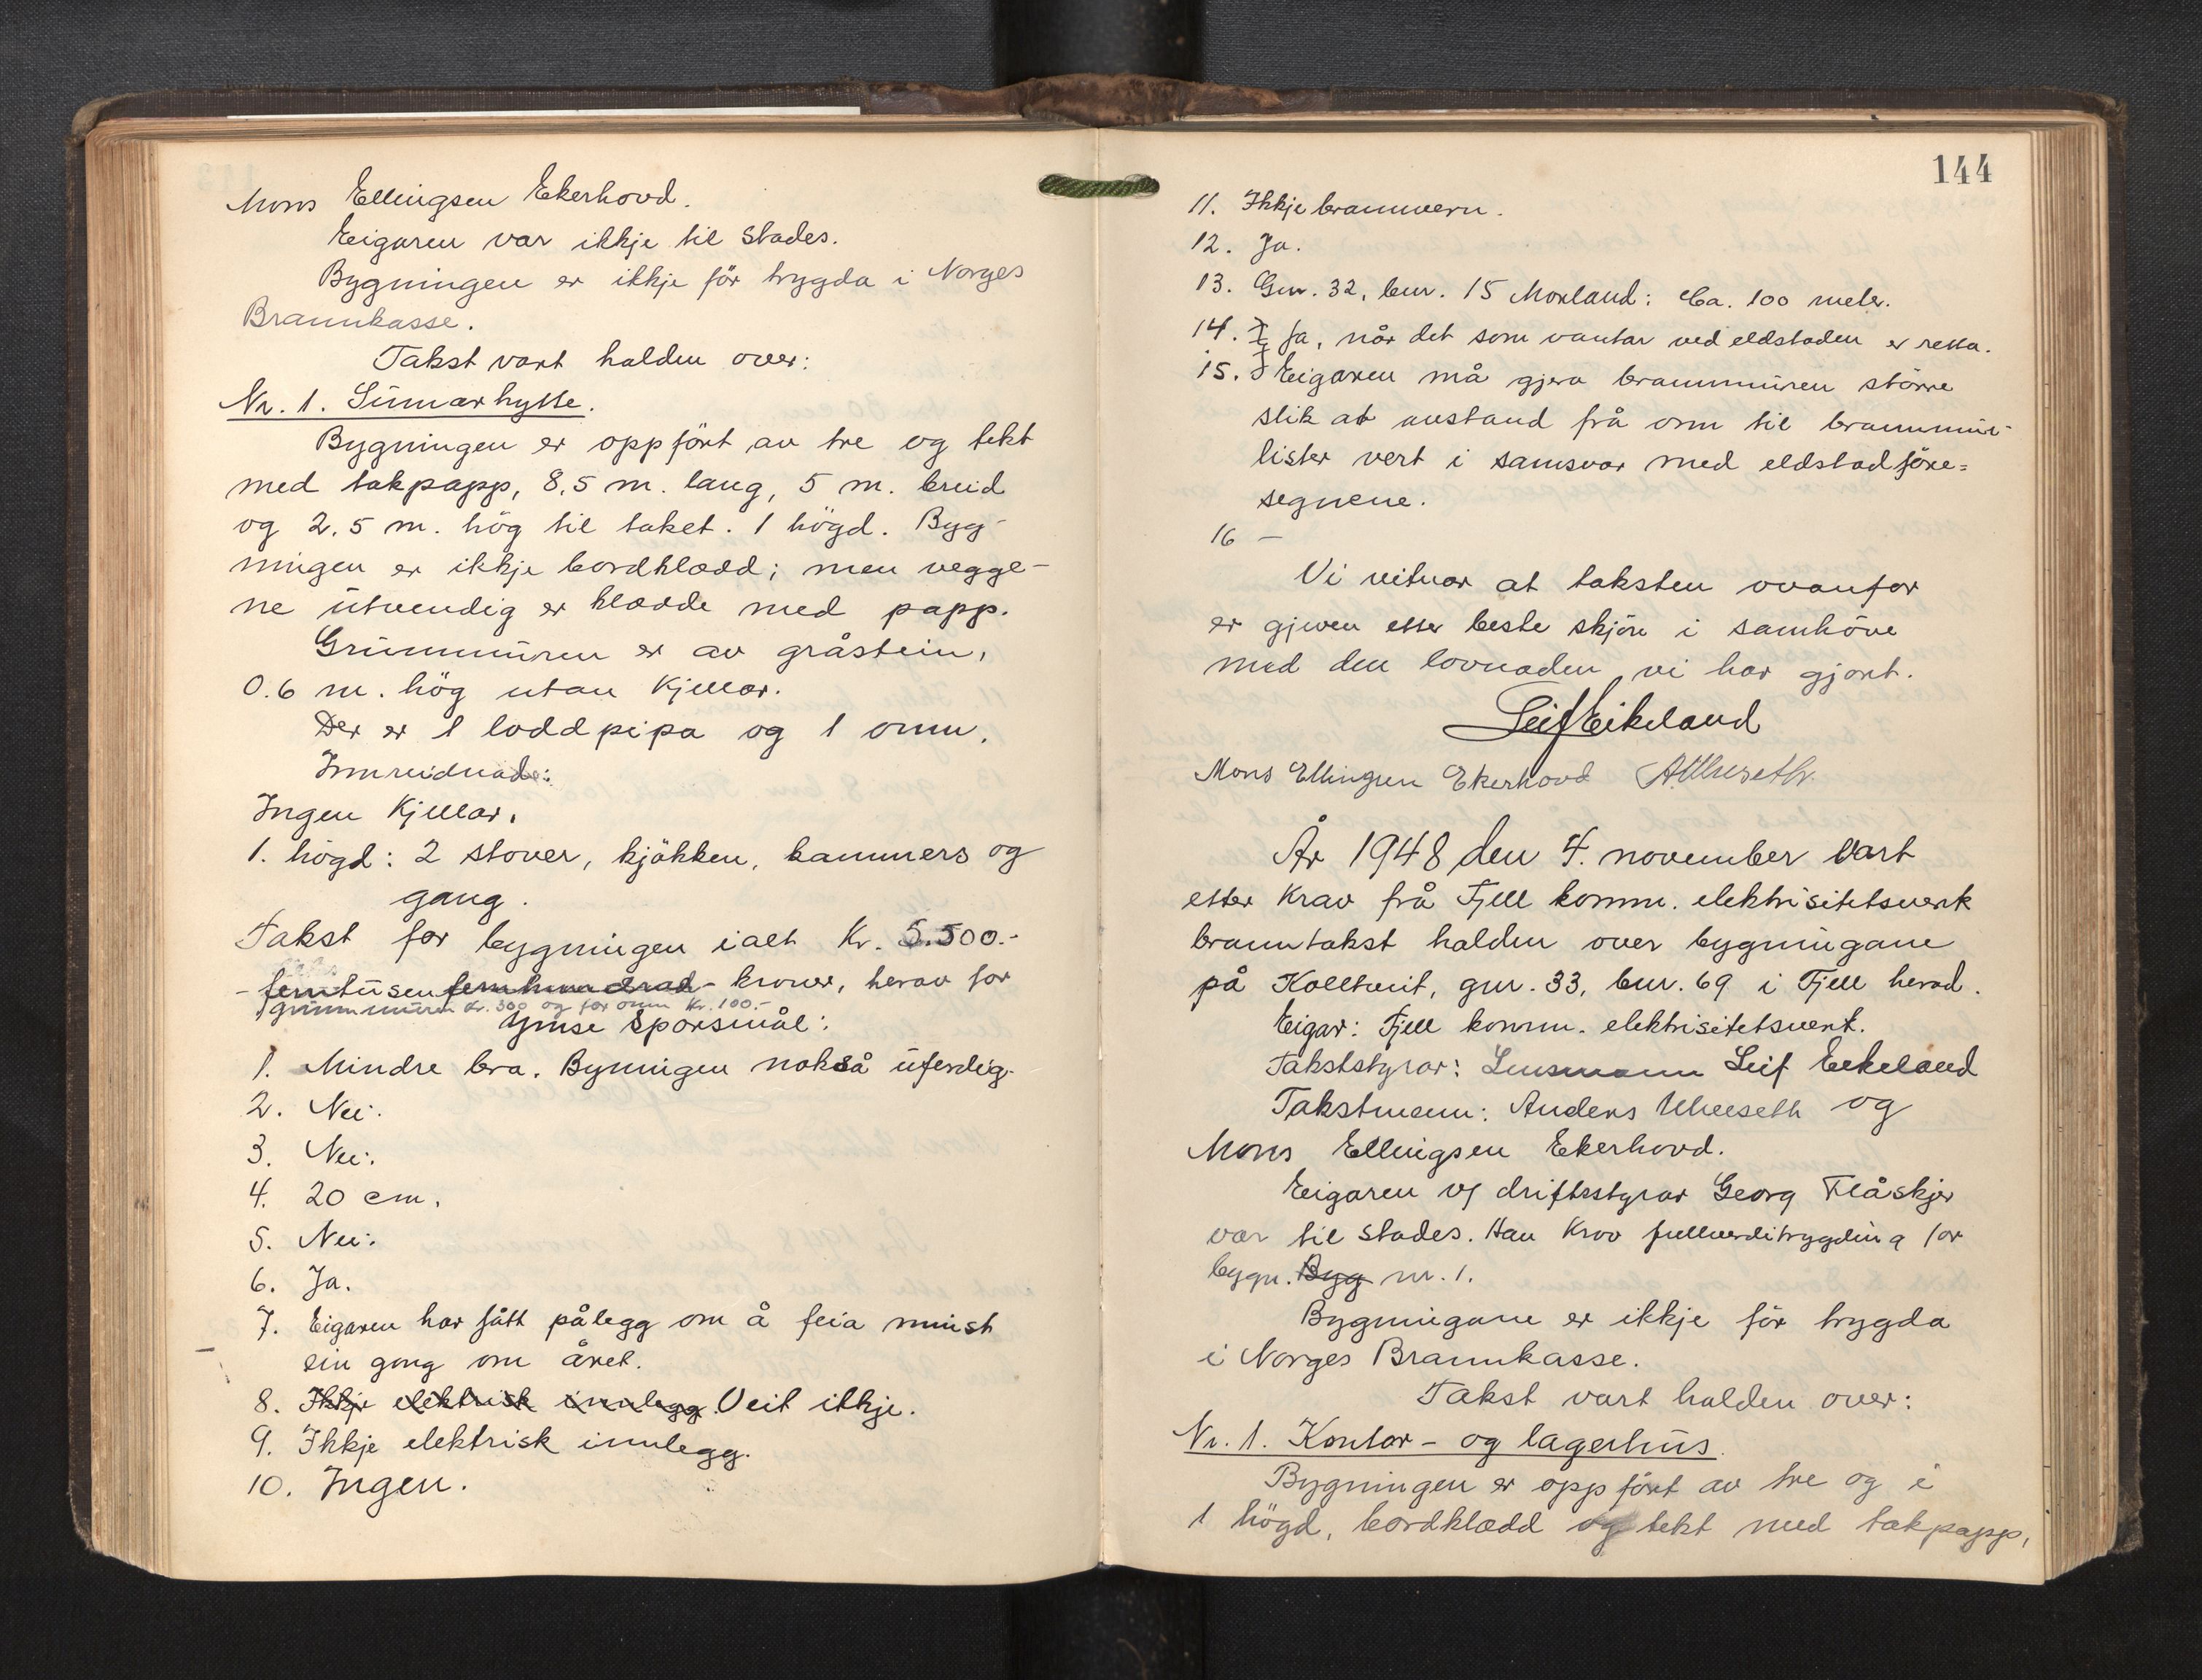 Mons Ellingsen Ekerhovd.
Eigaren var ikkje til stades.
Bygningen er ikkje för trygda i Norges
Brannkasse.
Takst vart halden over:
Nr. 1. Sumarhytte.
Bygningen er oppfört av tre og tekt
med takpapp, 8,5 m. lang, 5 m. breid
og 2,5 m. hög til taket. 1 högd. Byg-
ningen er ikkje bordklædd; men vegge-
ne utvendig er klædde med papp.
Grunnmuren er av gråstein,
0.6 m. hög utan kjellar.
Der er 1 loddpipa og 1 omn.
Innreidnad:
Ingen kjellar.
1. högd: 2 stover, kjökken, kammers og
gang.
Takst for bygningen ialt kr. 5.500.-
- femtusenfemhundrad - kroner, herav for
grunnmuren kr. 300 og for omn kr. 100.-
Ymse Spörsmål:
1. Mindre bra. Byningen nokså uferdig.
2. Nei.
3. Nei.
4. 20 cm.
5. Nei.
6. Ja.
7. Eigaren har fått pålegg om å feia minst
ein gong om året.
8. Ikkje elektrisk innlegg. Veit ikkje.
9. Ikkje elektrisk innlegg.
10. Ingen.
144
11. Ikkje brannvern.
12. Ja.
13. Gnr. 32, bnr. 15 Morland: Ca. 100 meter.
14. Ja, når det som vantar ved eldstaden er retta.
15. Eigaren må gjera brannmuren större
slik at avstand frå omn til brannmur-
lister vert i samsvar med eldstadföre=
segnene.
16 –
Vi vitnar at taksten ovanfor
er gjeven etter beste skjön i samhöve
med den lovnaden vi har gjort.
Leif Eikeland
Mons Ellingsen Ekerhovd A Ulveseth
År 1948 den 4. november vart
etter krav frå Fjell komm. elektrisitetsverk
branntakst halden over bygningane
på Kolltveit, gnr. 33, bnr. 69 i Fjell herad.
Eigar: Fjell komm. elektrisitetsverk.
Takststyrar: Lensmann Leif Eikeland
Takstmenn: Anders Ulveseth og
Mons Ellingsen Ekerhovd.
Eigaren v/ driftsstyrar Georg Flåskjer
var til stades. Han krov fullverditrygding for
bygn. Byg nr. 1.
Bygningane er ikkje för trygda
i Norges Brannkasse.
Takst vart halden over:
Nr. 1. Kontor- og lagerhus.
Bygningen er oppfört av tre og i
1 högd, bordklædd og tekt med takpapp,